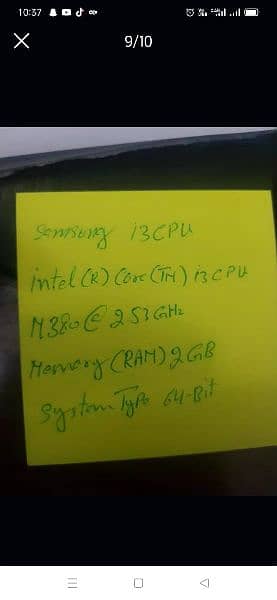 10:37
9/10
Samsung i3CPU
intel(R) Core(TM) i3 CPU
M380@ 2.53GHz
Memory (RAM) 2GB
System Type 64-Bit